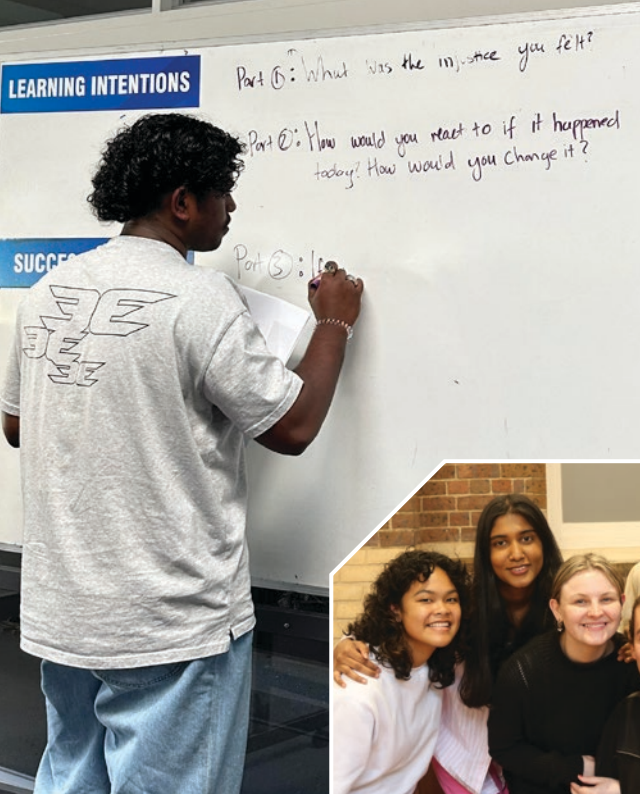 LEARNING INTENTIONS
Part ①: What was the injustice you felt?
Part ②: How would you react to if it happened
today? How would you change it?
SUCCE
Part ③: If